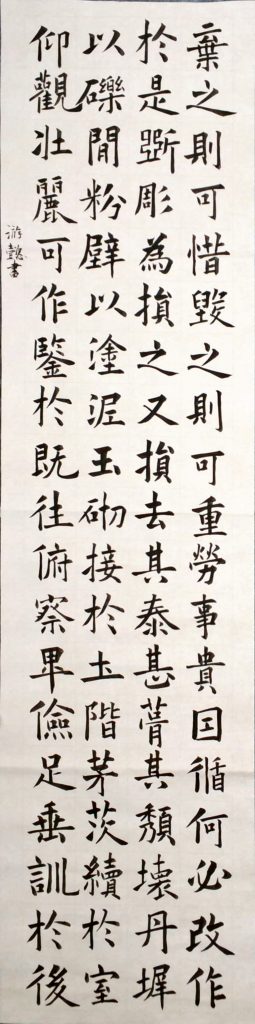 棄之則可惜毀之則可重勞事貴因循何必改作
於是斲彫為損之又損去其泰甚葺其頹壞丹墀
以礫閒粉壁以塗泥玉砌接於土階茅茨續於室
仰觀壯麗可作鑒於既往俯察卑儉足垂訓於後
游懿書